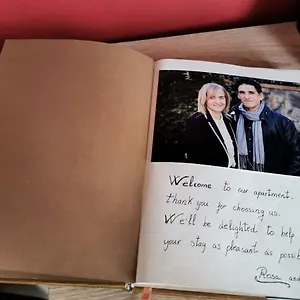 Welcome to our apartment,
thank you for choosing us.
We'll be delighted to help
your stay as pleasant as possib
Rosa and